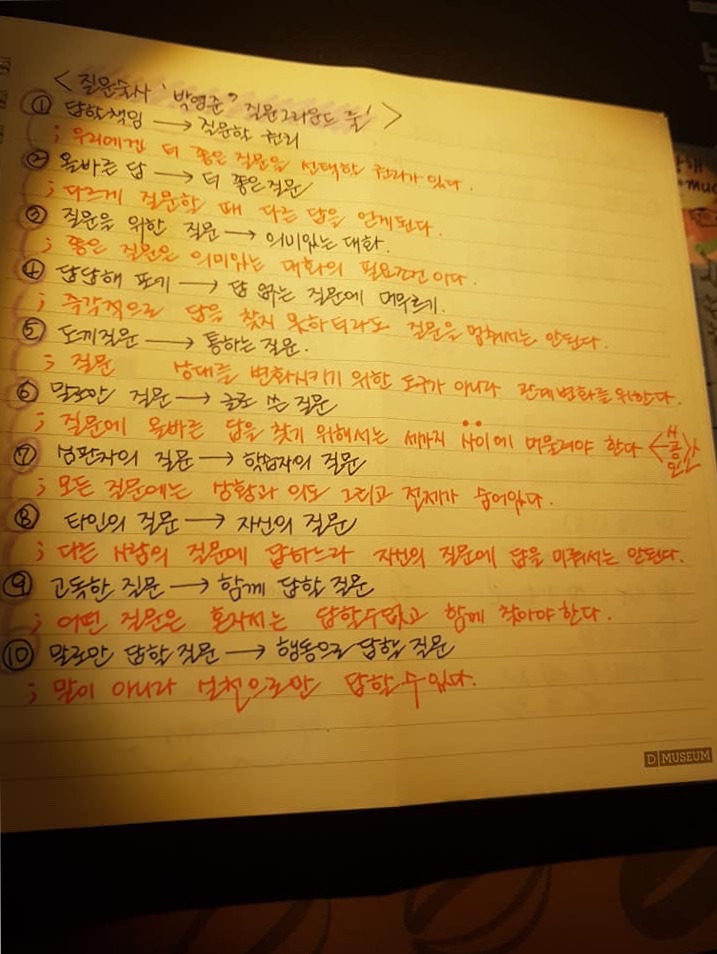 < 질문술사 '박영준' 질문그라운드 룰' >
① 답할책임 → 질문할 권리
; 우리에겐 더 좋은 질문을 선택할 권리가 있다.
② 올바른 답 → 더 좋은질문
; 다르게 질문할 때 다른 답을 얻게된다.
③ 질문을 위한 질문 → 의미있는 대화.
; 좋은 질문은 의미있는 대화의 필요조건 이다.
④ 답답해 포기 → 답 없는 질문에 머무르기.
; 즉각적으로 답을 찾지 못하더라도 질문을 멈춰서는 안된다.
⑤ 도끼질문 → 통하는 질문.
; 질문 상대를 변화시키기 위한 도구가 아니라 관계변화를 위한다.
⑥ 말로만 질문 → 글로 쓴 질문
; 질문에 올바른 답을 찾기 위해서는 세가지 사이에 머물러야 한다 <시 공 인 간>
⑦ 심판자의 질문 → 학습자의 질문
; 모든 질문에는 상황과 의도 그리고 전제가 숨어있다.
⑧ 타인의 질문 → 자신의 질문
; 다른 사람의 질문에 답하느라 자신의 질문에 답을 미뤄서는 안된다.
⑨ 고독한 질문 → 함께 답할 질문
; 어떤 질문은 혼자서는 답할수없고 함께 찾아야 한다.
⑩ 말로만 답할 질문 → 행동으로 답할 질문
; 말이 아니라 실천으로만 답할 수 있다.
D MUSEUM